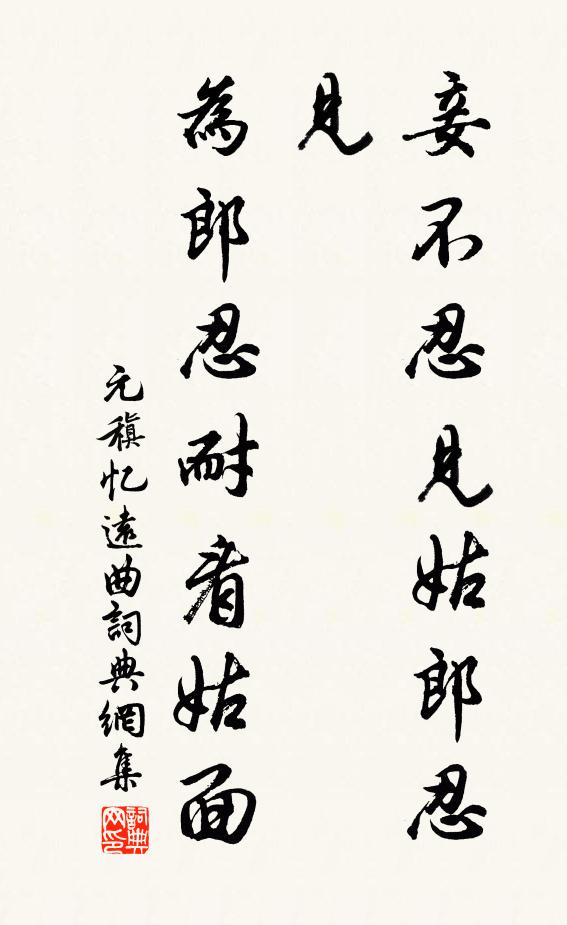 妾不忍見姑郎忍
見
為郎忍耐看姑面
元稹忆遠曲詞典網集
詞典
网印